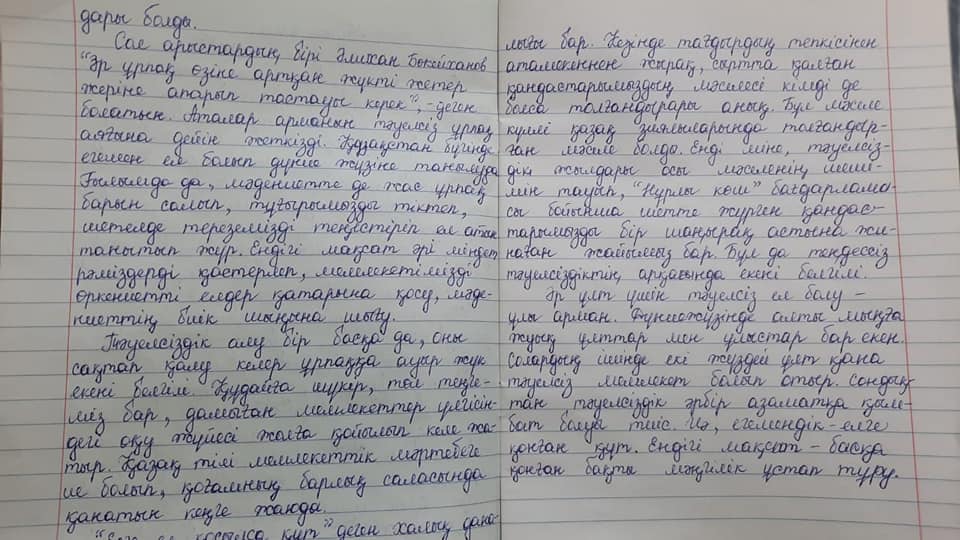 дары болды.
Сол арыстардың бірі Әлихан Бөкейханов
"Әр ұрпақ өзіне артқан жүкті жетер
жеріне апарып тастауы керек", - деген
болатын. Аталар арманын тәуелсіз ұрпақ
аяғына дейін жеткізді. Қазақстан бүгінде
егемен ел болып дүние жүзіне танылуда
Ғылымда да, мәдениетте де жас ұрпақ
барын салып, тұғырымызды тіктеп,
шетелде тереземізді теңестіріп ел атын
танытып жүр. Ендігі мақсат әрі міндет
рәміздерді қастерлеп, мемлекетімізді
өркениетті елдер қатарына қосу, мәде-
ниеттің биік шыңына шығу.
Тәуелсіздік алу бір басқа да, оны
сақтап қалу келер ұрпаққа ауыр жүк
екені белгілі. Құдайға шүкір, төл теңге-
міз бар, дамыған мемлекеттер үлгісін-
дегі оқу жүйесі жолға қойылып келе жа-
тыр. Қазақ тілі мемлекеттік мәртебеге
ие болып, қоғамның барлық саласында
қанатын кеңге жаюда.
қосылса құт" деген халық дана-
лығы бар. Кезінде тағдырдың тепкісінен
атамекеннен жырақ, сыртта қалған
қандастарымыздың мәселесі кімді де
болса толғандырары анық. Бұл мәселе
күллі қазақ зиялыларында толғандыр-
ған мәселе болды. Енді міне, тәуелсіз-
дік жылдары осы мәселенің шеші-
мін тауып, "Нұрлы көш" бағдарлама-
сы бойынша шетте жүрген қандас-
тарымызды бір шаңырақ астына жи-
наған жайымыз бар. Бұл да теңдессіз
тәуелсіздіктің арқасында екені белгілі.
Әр ұлт үшін тәуелсіз ел болу –
ұлы арман. Дүниежүзінде алты мыңға
жуық ұлттар мен ұлыстар бар екен.
Солардың ішінде екі жүздей ұлт қана
тәуелсіз мемлекет болып отыр. Сондық-
тан тәуелсіздік әрбір азаматқа қым-
бат болуы тиіс. Иә, егемендік - елге
қонған құт. Ендігі мақсат – басқа
қонған бақты мәңгілік ұстап тұру.